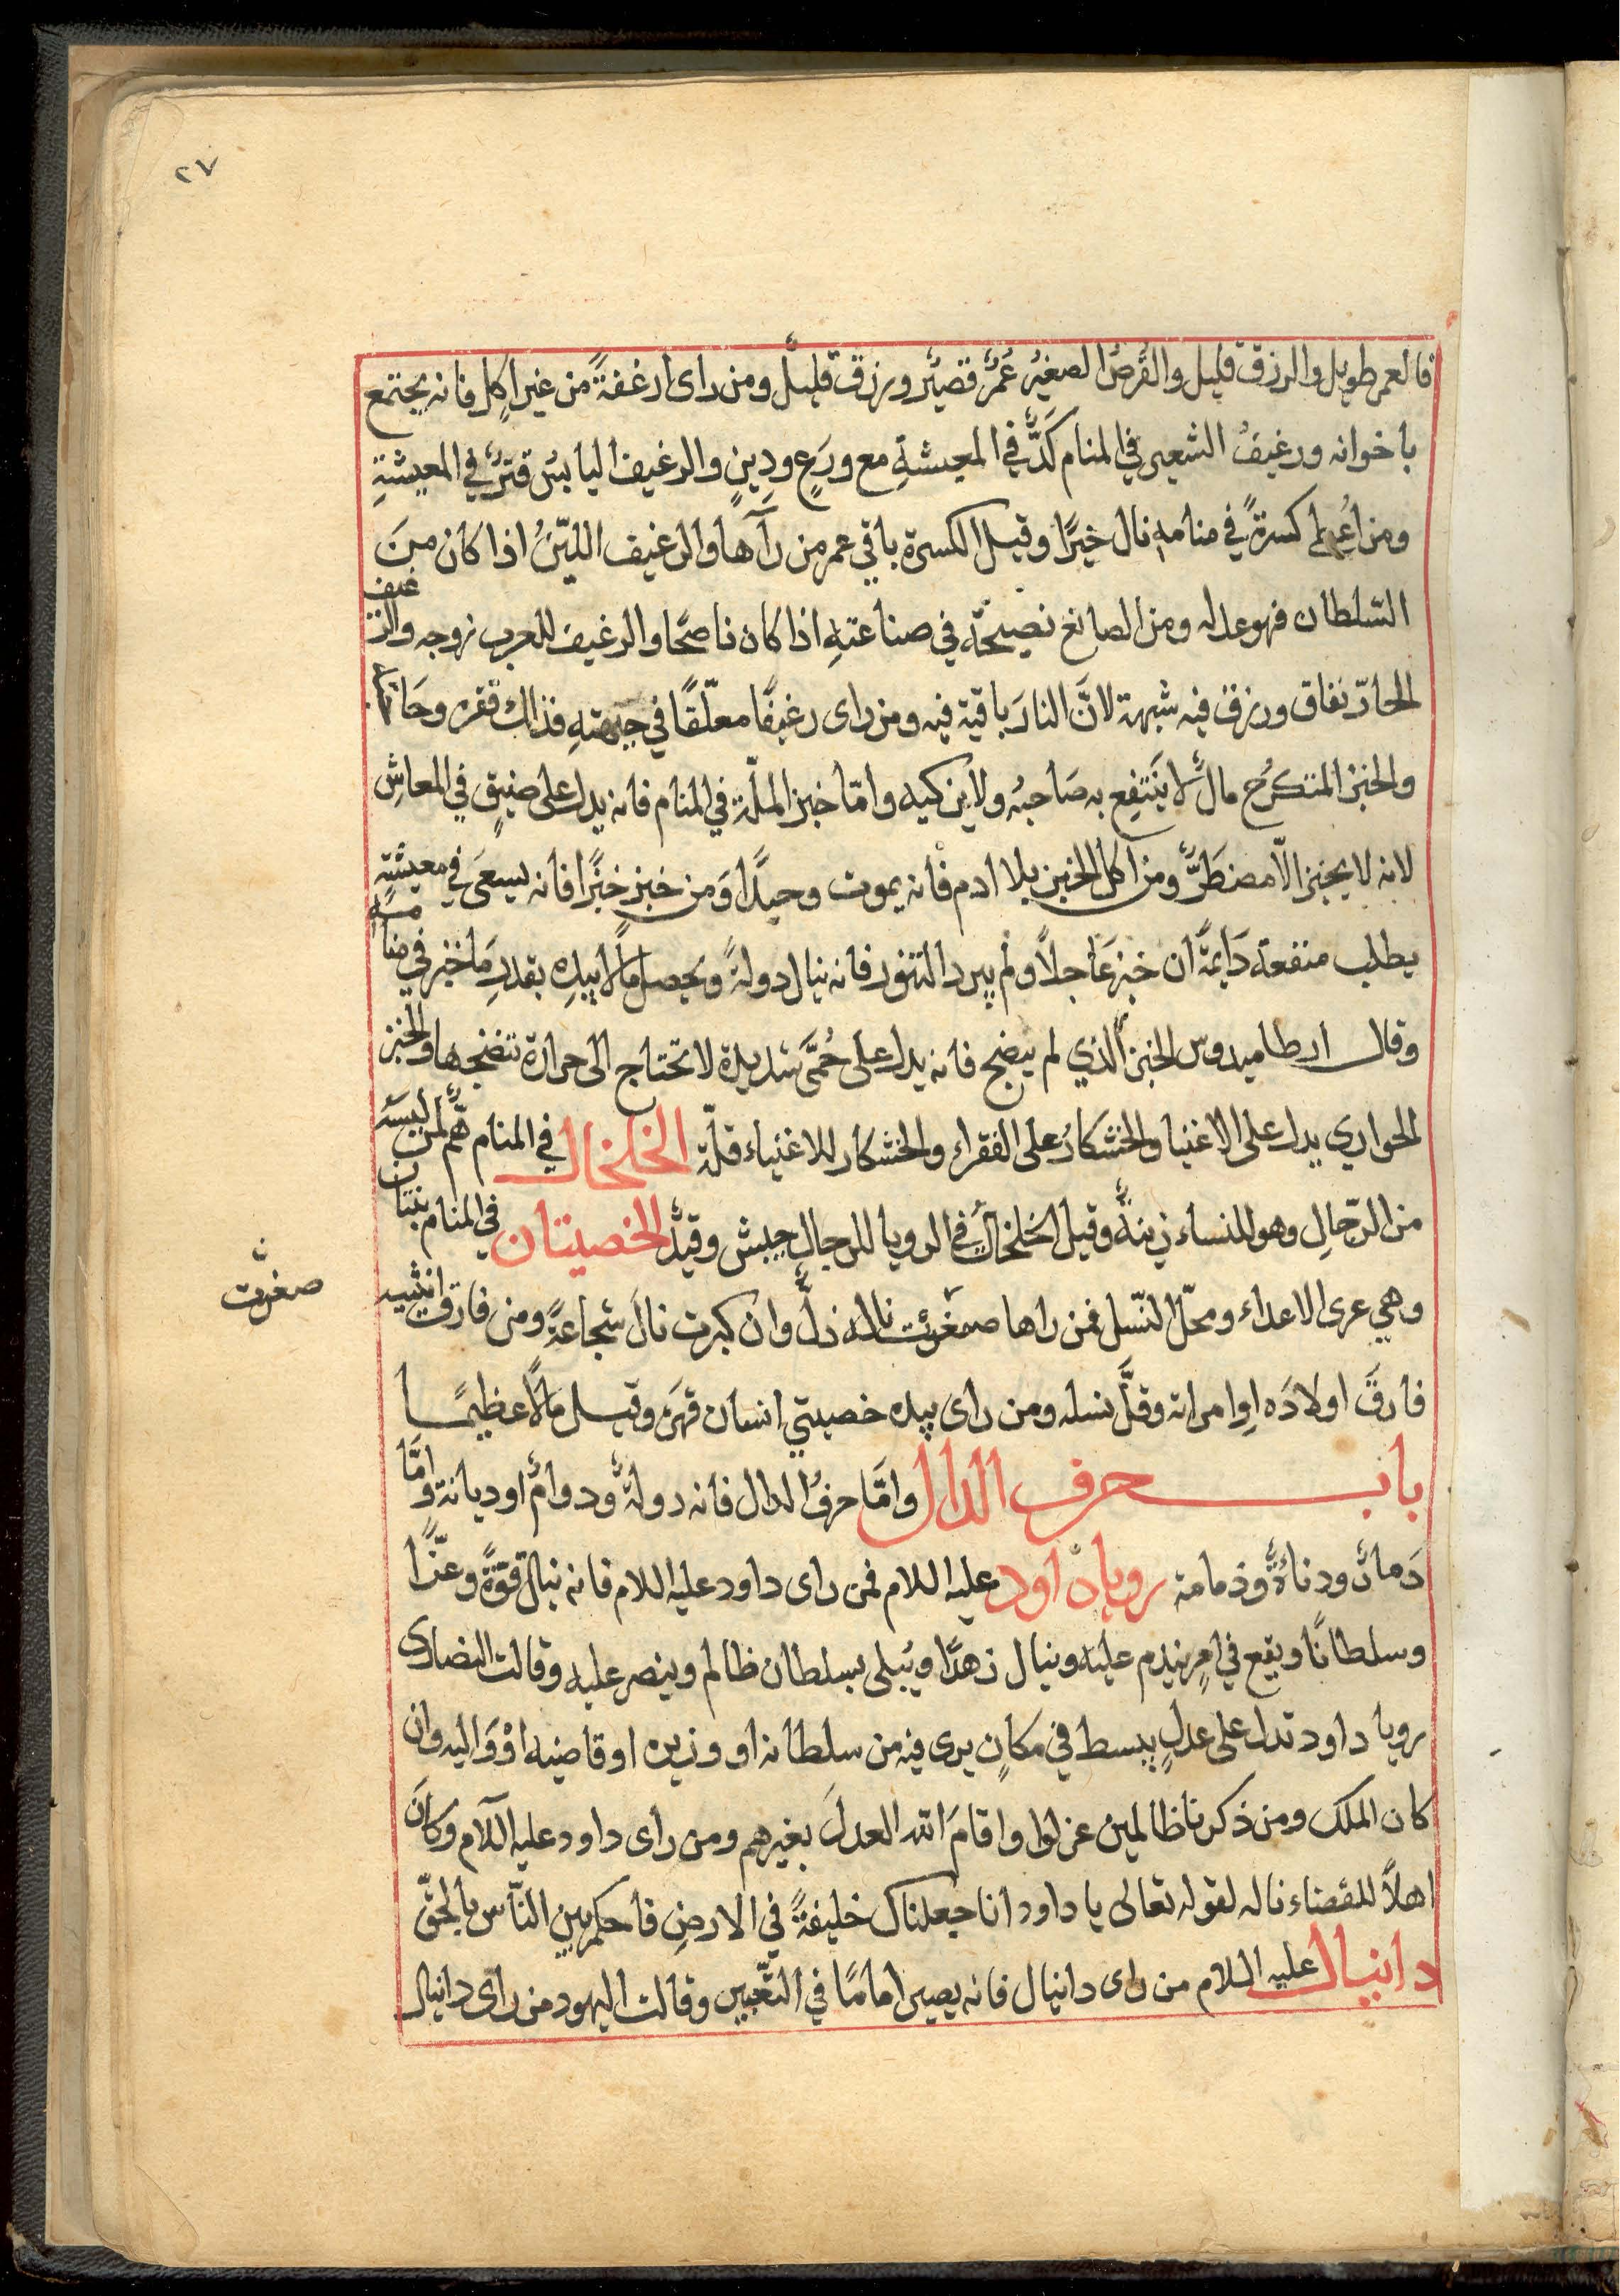 ٢٧
فالعمر طويل والرزق قليل والقُرصُ الصغيرُ عُمرٌ قصيرٌ ورزق قليلٌ ومن راى ارغفةً من غير اكلٍ فانه يجتمع
باخوانه ورغيفُ الشعير في المنام كَدٌّ في المعيشةِ مع ورَعٍ ودِينٍ والرغيف اليابسُ قترٌ في المعيشةِ
ومن اُعطى كسرةً في منامهِ نال خيرًا وقيل الكسرة باقي عمر من رآها والرغيف الليّنُ اذا كان منَ
السّلطان فهو عدله ومن الصانع نصيحةٌ في صناعتهِ اذا كان ناصحًا والرغيف للعزب زوجه والرغيف
الحارّ نفاق ورزق فيه شبهة لانَّ النارَ باقية فيه ومن راى رغيفًا معلّقًا في جبهتهِ فذلك فقره وحاجته
والخبز المتكرّج مالٌ لا يَنتفِع به صَاحبُه ولا يزكيه وامّا خبز الملّة في المنام فانه يدل على ضيقٍ في المعاشِ
لانه لا يخبز الّا مضطَرٌّ ومن اكل الخبز بلا ادم فانه يموت وحيدًا وَمن خبز خبزًا فانه يسعَى في معيشةٍ
يطلب منفعة دَايمةً ان خبز عَاجلاً ولم يبرد التنور فانه ينال دولةً ويحصل مالاً بيدِهِ بقدرِ مَا خبز في منامهِ
وقال ارطاميدوس الخبز الذي لم ينضج فانه يدل على حُمَّى شديدة لا تحتاج الى حرارة تنضجها والخبز
الحواري يدل على الاغنيا والخشكارُ على الفقراء والخشكار للاغنياء قلّة الخلخال في المنام همٌّ لمن لبسَهُ
من الرّجالِ وهو للنساء زينةٌ وقيل الخلخالُ في الرويا للرجال حبش وقيدٌ الخصيتان في المنام بنتان
وهي عرى الاعداء ومحلّ النّسل فمن راها صغرت ناله ذلٌّ وان كبرت نالَ شجاعةً ومن فارق انثييه
صغرت
فارقَ اولادَه اوِ امراته وقلَّ نسله ومن راى بيده خصيتي انسان قهرَه وقيل مالاً عظيمًا
باب حرف الدال وامَّا حرفُ الدال فانه دولةٌ ودوامٌ او ديانة وامَّا
دَمارٌ ودناءةٌ وذمامة رويا داود عليه السلام فمن راى داود عليه السلام فانه ينال قوّةً وعزًّا
وسلطانًا ويقع في امرٍ يندم عليه وينال زهدًا ويُبلى بسلطان ظالم وينصر عليه وقالت النصارى
رويا داود تدل على عدلٍ يبسط في مكانٍ يرى فيه من سلطانه او وزيره او قاضيه اوْ وَاليه وان
كان الملك ومن ذكرنا ظالمين عزلوا واقامَ الله العدلَ بغيرهم ومن راى داود عليه السّلام وكانَ
اهلاً للقضاء ناله لقوله تعالى يا داود انا جعلناك خليفةً في الارضِ فاحكم بين النّاس بالحقّ
دانيال عليه السلام من راى دانيال فانه يصير امامًا في التّعبير وقالت اليهود من راى دانيال